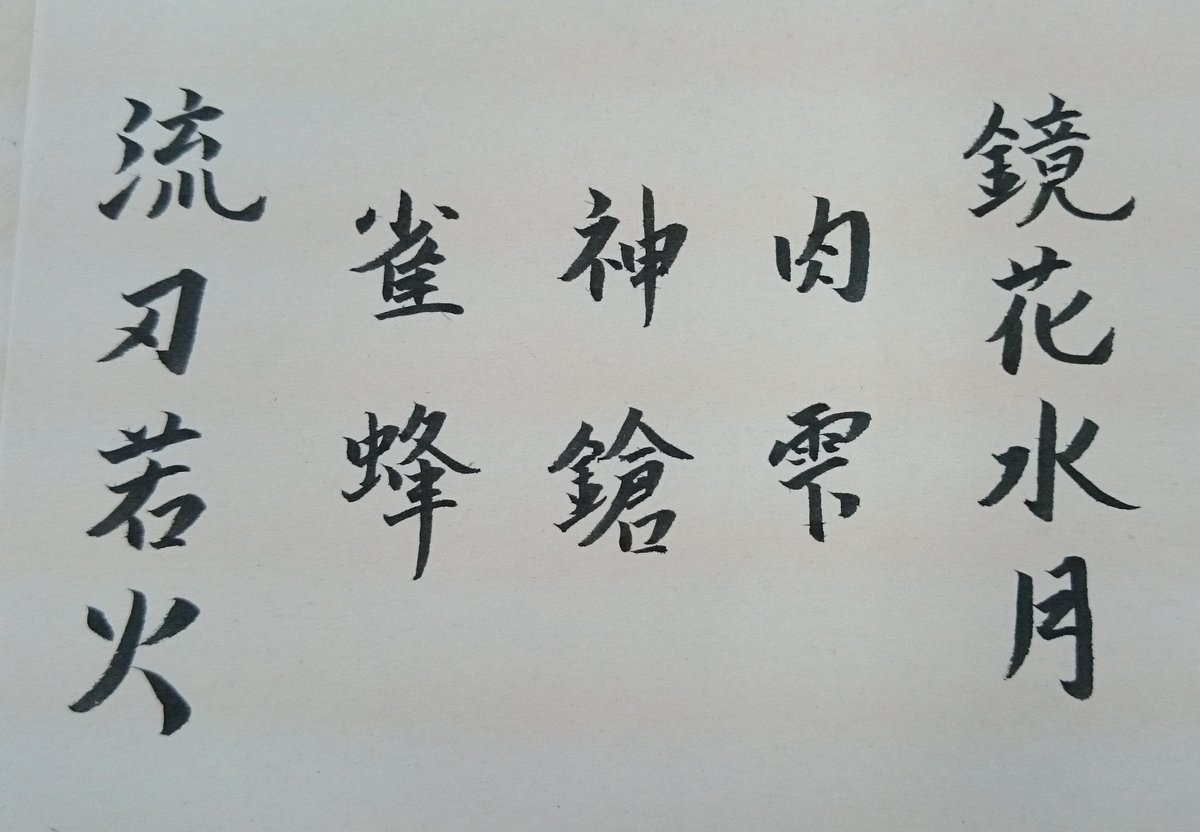 鏡花水月
肉雫
神鎗
雀蜂
流刃若火